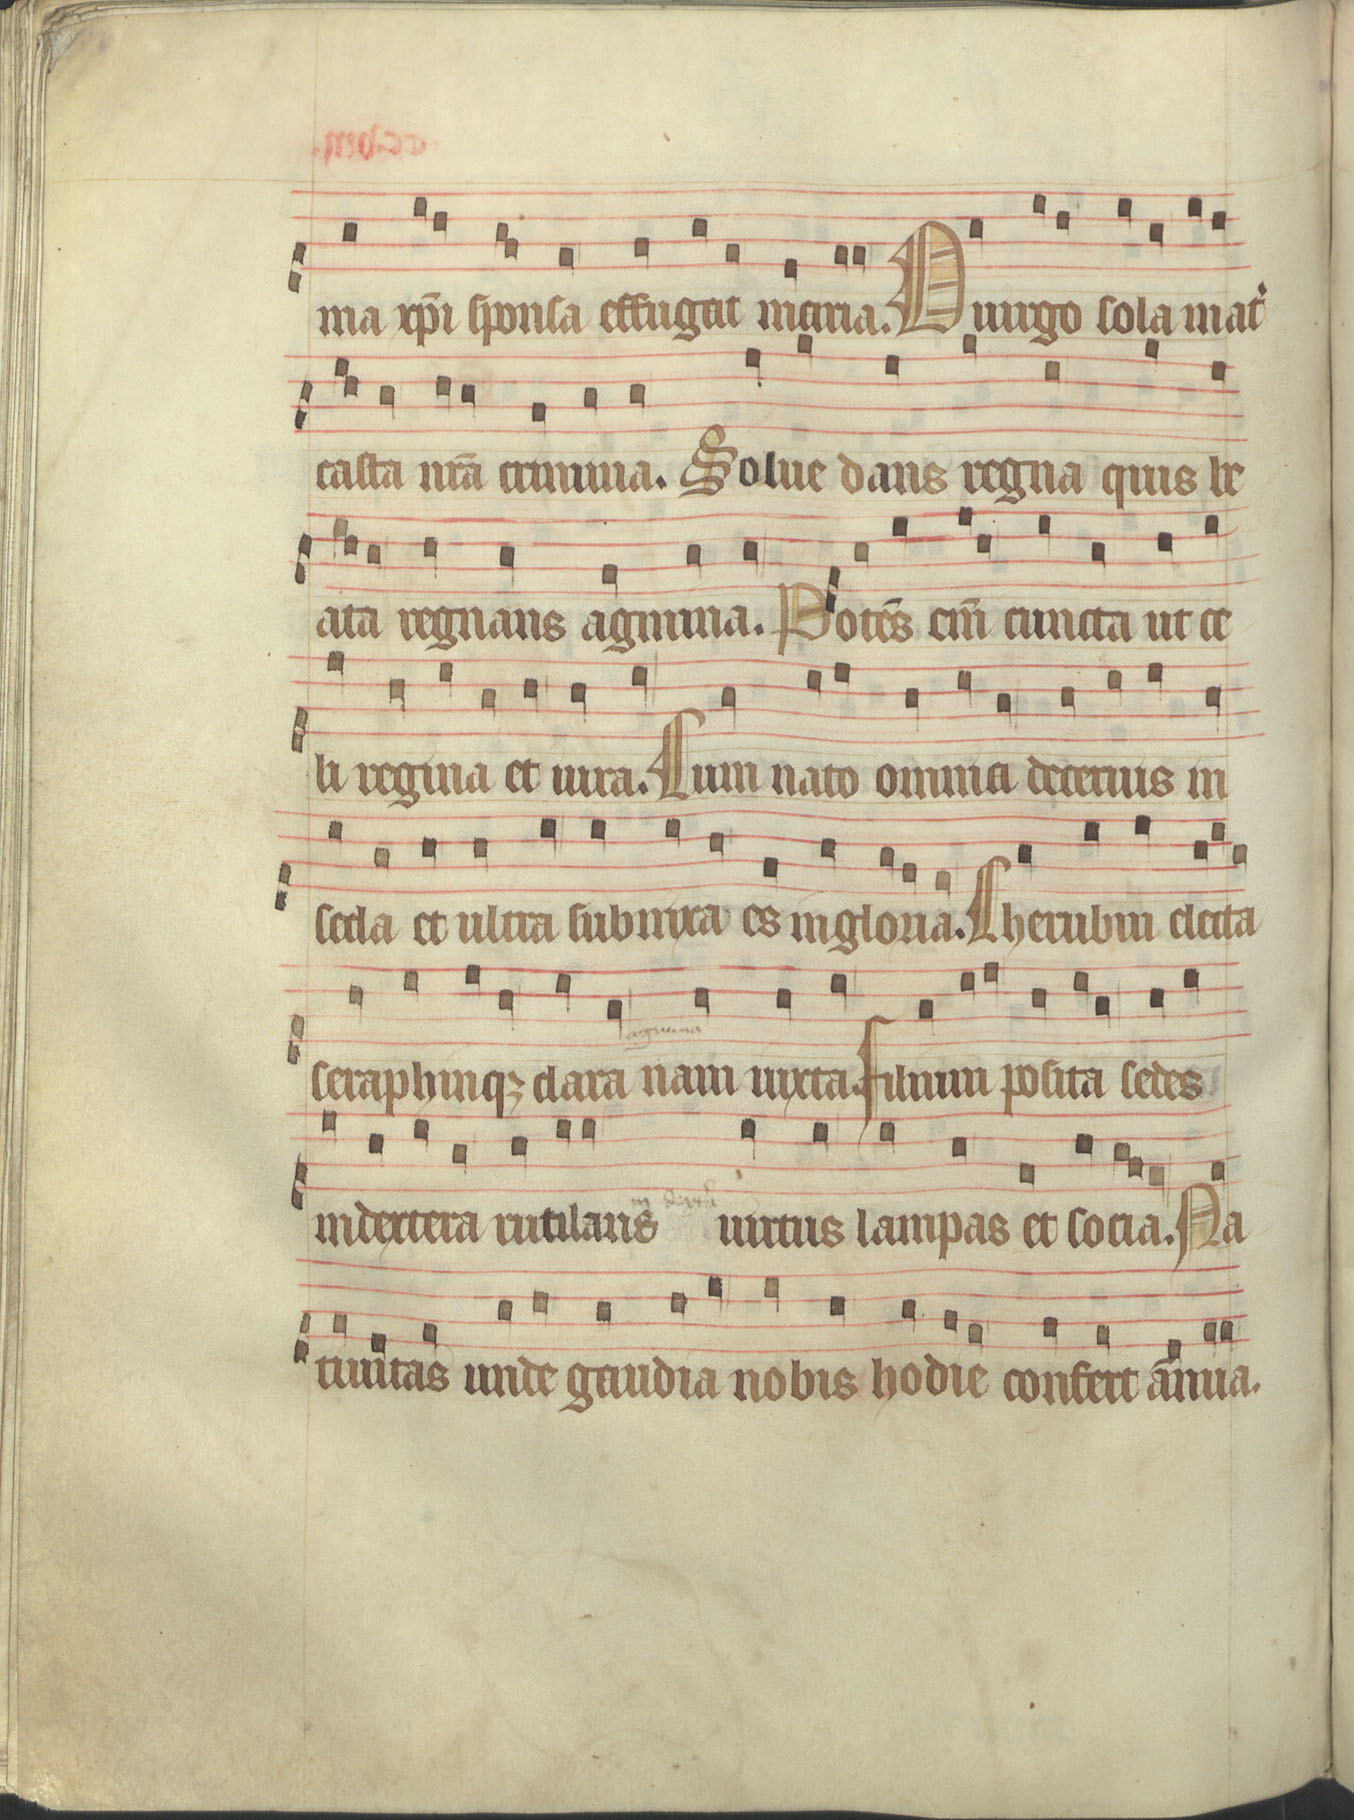 ma xp̄i sponsa effugat maria. O uirgo sola mat̉
casta nrā crimina. Solue dans regna quis be
ata regnans agmina. Potēs em̄ cuncta ut ce
li regina et iura. Cum nato omnia decernis in
secla et ultra subnixa es in gloria. Cherubin electa
seraphinqꝫ clara nam iuxta. filium posita sedes
agmina
in dextera rutilans uirtus lampas et socia. Na
tiuitas unde gaudia nobis hodie confert ānua.